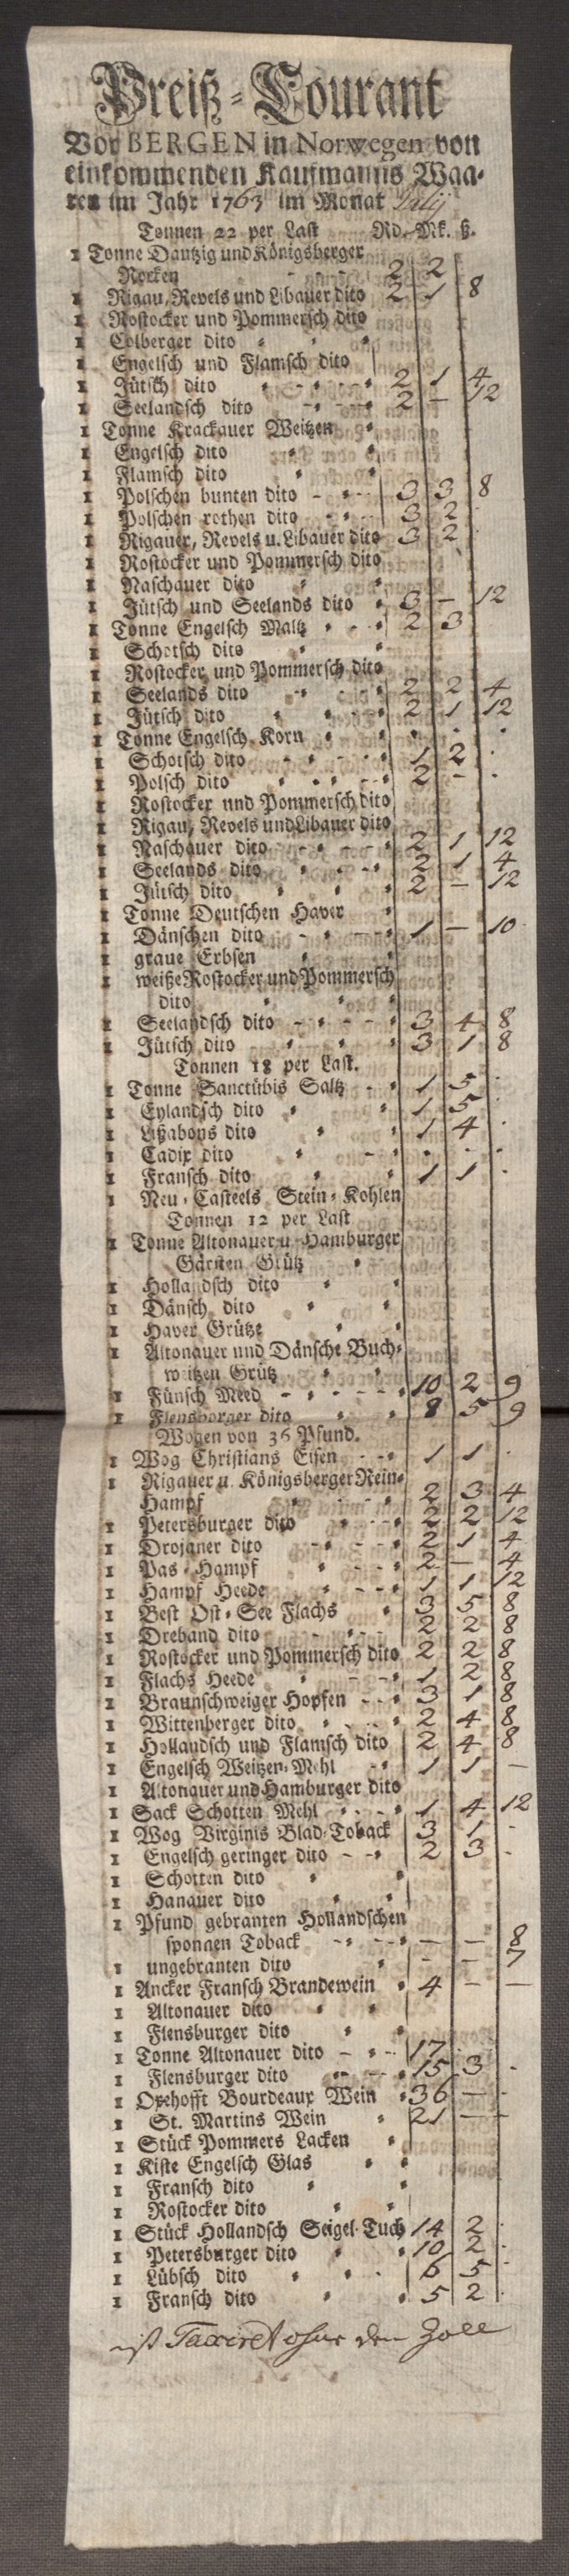 Preiß-Courant
Vor BERGEN in Norwegen von
einkommenden Kaufmanns Waa-
ren im Jahr 1763 im Monat Julij
Tonnen 22 per Last Rd. Mk. ß.
1 Tonne Dantzig und Königsberger
Rocken 2 2
1 Rigau, Revels und Libauer dito 2 1 8
1 Rostocker und Pommersch dito
1 Colberger dito
1 Engelsch und Flamsch dito
1 Jütsch dito 2 1 4
1 Seelandsch dito 2 — 12
1 Tonne Krackauer Weitzen
1 Engelsch dito
1 Flamsch dito
1 Polschen bunten dito 3 3 8
1 Polschen rothen dito 3 2
1 Rigauer, Revels u. Libauer dito 3 2
1 Rostocker und Pommersch dito
1 Naschauer dito
1 Jütsch und Seelands dito 3 — 12
1 Tonne Engelsch Maltz 2 3
1 Schotsch dito
1 Rostocker und Pommersch dito
1 Seelands dito 2 2 4
1 Jütsch dito 2 1 12
1 Tonne Engelsch Korn
1 Schotsch dito 1 2
1 Polsch dito 2 -
1 Rostocker und Pommersch dito
1 Rigau, Revels und Libauer dito
1 Naschauer dito 2 1 12
1 Seelands dito 2 1 4
1 Jütsch dito 2 — 12
1 Tonne Deutschen Haver
1 Dänschen dito 1 — 10
1 graue Erbsen
1 weiße Rostocker und Pommersch
dito
1 Seelandsch dito 3 4 8
1 Jütsch dito 3 1 8
Tonnen 18 per Last.
1 Tonne Sanctübis Saltz 1 5
1 Eylandsch dito 1 5
1 Lißabons dito 1 4
1 Cadix dito
1 Fransch dito 1 1
1 Neu-Casteels Stein-Kohlen
Tonnen 12 per Last
1 Tonne Altonauer u Hamburger
Gärsten Grütz
1 Hollandsch dito
1 Dänsch dito
1 Haver Grütze
1 Altonauer und Dänsche Buch-
weitzen Grütz
1 Fünsch Meed 10 2 9
1 Flensborger dito 8 5 9
Wogen von 36 Pfund.
1 Wog Christians Eisen 1 1
1 Rigauer u. Königsberger Rein-
Hampf 2 3 4
1 Petersburger dito 2 2 12
1 Drojaner dito 2 1 4
1 Pas-Hampf 2 — 4
1 Hampf Heede 1 1 12
1 Best Ost-See Flachs 3 5 8
1 Dreband dito 2 2 8
1 Rostocker und Pommersch dito 2 2 8
1 Flachs Heede 1 2 8
1 Braunschweiger Hopfen 3 1 8
1 Wittenberger dito 2 4 8
1 Hollandsch und Flamsch dito 2 4 8
1 Engelsch Weitzen-Mehl 1 1 —
1 Altonauer und Hamburger dito
1 Sack Schotten Mehl 1 4 12
1 Wog Virginis Blad-Toback 3 1
1 Engelsch geringer dito 2 3
1 Schotten dito
1 Hanauer dito
1 Pfund gebranten Hollandschen
sponnen Toback — — 8
1 ungebranten dito - - 7
1 Ancker Fransch Brandewein 4 — —
1 Altonauer dito
1 Flensburger dito
1 Tonne Altonauer dito 17
1 Flensburger dito 15 3
1 Oxehofft Bourdeaux Wein 36 —
1 St. Martins Wein 21 — —
1 Stück Pommers Lacken
1 Kiste Engelsch Glas
1 Fransch dito
1 Rostocker dito
1 Stück Hollandsch Seigel-Tuch 14 2
1 Petersburger dito 10 2
1 Lübsch dito 6 5
1 Fransch dito 5 2
ist Taxiret ohne den Zoll